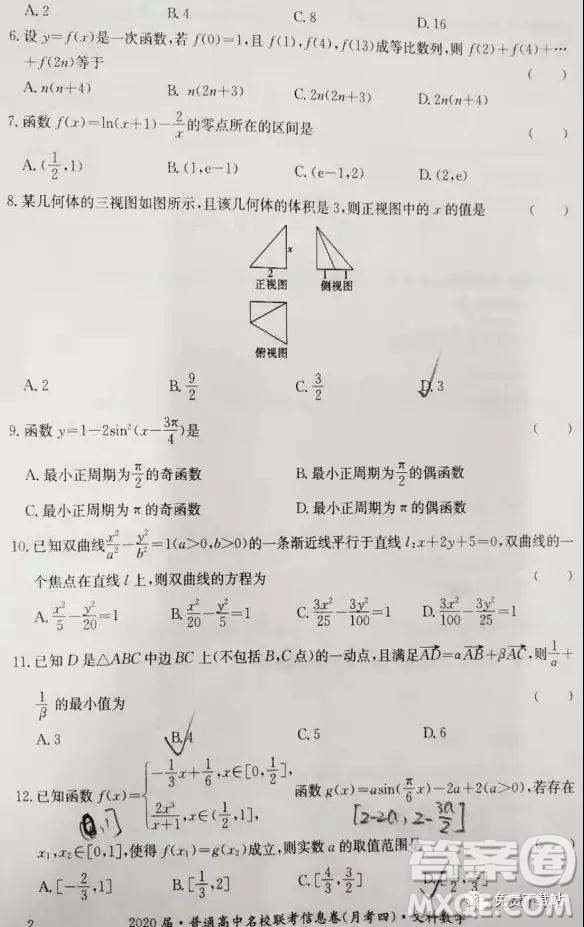 A. 2 B. 4 C. 8 D. 16
6. 设 y=f(x)是一次函数,若 f(0)=1,且 f(1),f(4),f(13)成等比数列,则 f(2)+f(4)+…
+f(2n)等于 ( )
A. n(n+4) B. n(2n+3) C. 2n(2n+3) D. 2n(n+4)
7. 函数 f(x)=ln(x+1)-2/x 的零点所在的区间是 ( )
A. (1/2,1) B. (1,e-1) C. (e-1,2) D. (2,e)
8. 某几何体的三视图如图所示,且该几何体的体积是 3,则正视图中的 x 的值是 ( )
x
2 1 1
正视图 侧视图
俯视图
A. 2 B. 9/2 C. 3/2 D. 3
9. 函数 y=1-2sin²(x-3π/4)是 ( )
A. 最小正周期为 π/2 的奇函数 B. 最小正周期为 π/2 的偶函数
C. 最小正周期为 π 的奇函数 D. 最小正周期为 π 的偶函数
10. 已知双曲线 x²/a²-y²/b²=1(a>0,b>0)的一条渐近线平行于直线 l:x+2y+5=0,双曲线的一
个焦点在直线 l 上,则双曲线的方程为 ( )
A. x²/5-y²/20=1 B. x²/20-y²/5=1 C. 3x²/25-3y²/100=1 D. 3x²/100-3y²/25=1
11. 已知 D 是△ABC 中边 BC 上(不包括 B,C 点)的一动点,且满足AD=αAB+βAC,则1/α+
1/β 的最小值为 ( )
A. 3 B. 4 C. 5 D. 6
12. 已知函数 f(x)={-1/3x+1/6,x∈[0,1/2], 2x³/x+1,x∈(1/2,1], 函数 g(x)=asin(π/6x)-2a+2(a>0),若存在
[2-2a, 2-3a/2]
x₁,x₂∈[0,1],使得 f(x₁)=g(x₂)成立,则实数 a 的取值范围是
A. [-2/3,1] B. [1/2,4/3] C. [4/3,3/2]
答案圈
免费下载站
2 2020 届·普通高中名校联考信息卷(月考四)·文科数学